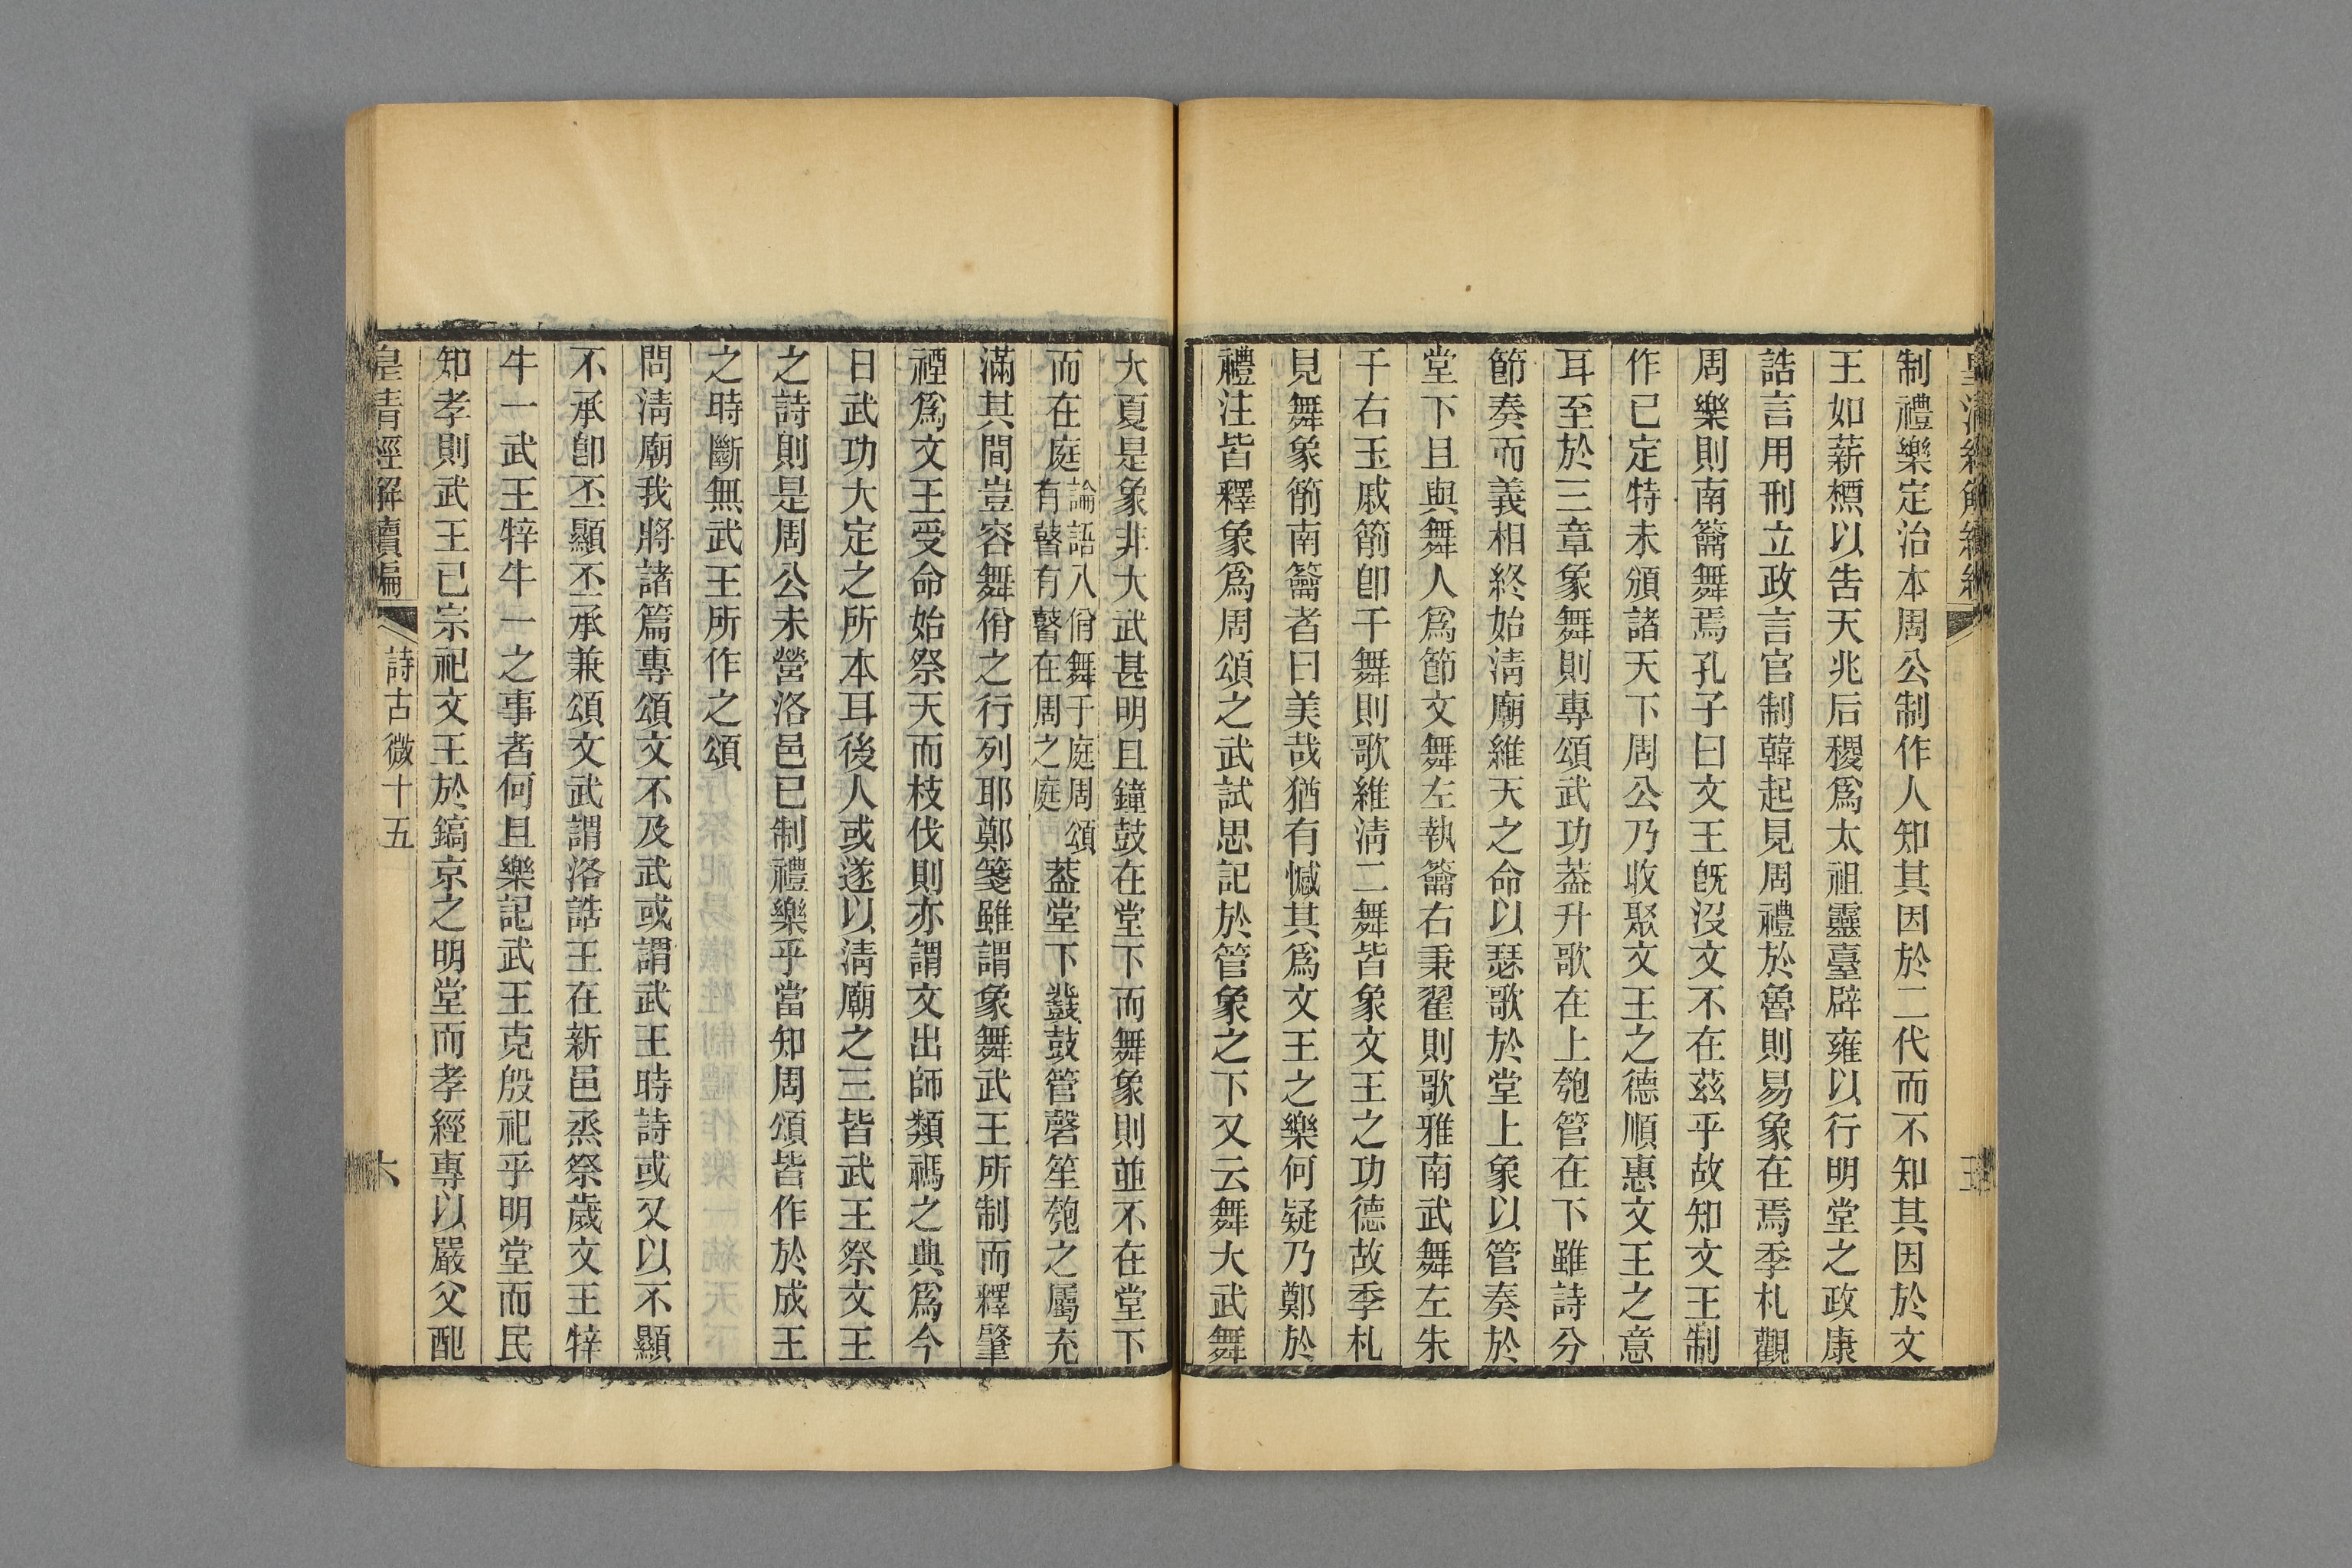 制禮樂定治本周公制作人知其因於二代而不知其因於文
王如薪槱以告天兆后稷爲太祖靈臺辟雍以行明堂之政康
誥言用刑立政言官制韓起見周禮於魯則易象在焉季札觀
周樂則南籥舞焉孔子曰文王旣沒文不在茲乎故知文王制
作已定特未頒諸天下周公乃收聚文王之德順惠文王之意
耳至於三章象舞則專頌武功蓋升歌在上匏管在下雖詩分
節奏而義相終始淸廟維天之命以瑟歌於堂上象以管奏於
堂下且與舞人爲節文舞左執籥右秉翟則歌雅南武舞左朱
干右玉戚箾卽干舞則歌維淸二舞皆象文王之功德故季札
見舞象箾南籥者曰美哉猶有憾其爲文王之樂何疑乃鄭於
禮注皆釋象爲周頌之武試思記於管象之下又云舞大武舞
大夏是象非大武甚明且鐘鼓在堂下而舞象則並不在堂下
而在庭論語八佾舞于庭周頌有瞽有瞽在周之庭蓋堂下鼗鼓管磬笙匏之屬充
滿其間豈容舞佾之行列耶鄭箋雖謂象舞武王所制而釋肇
禋爲文王受命始祭天而枝伐則亦謂文出師類禡之典爲今
日武功大定之所本耳後人或遂以淸廟之三皆武王祭文王
之詩則是周公未營洛邑已制禮樂乎當知周頌皆作於成王
之時斷無武王所作之頌
問淸廟我將諸篇專頌文不及武或謂武王時詩或又以不顯
不承卽丕顯丕承兼頌文武謂洛誥王在新邑烝祭歲文王騂
牛一武王騂牛一之事者何且樂記武王克殷祀乎明堂而民
知孝則武王已宗祀文王於鎬京之明堂而孝經專以嚴父配
皇清經解續編
詩古微十五
六